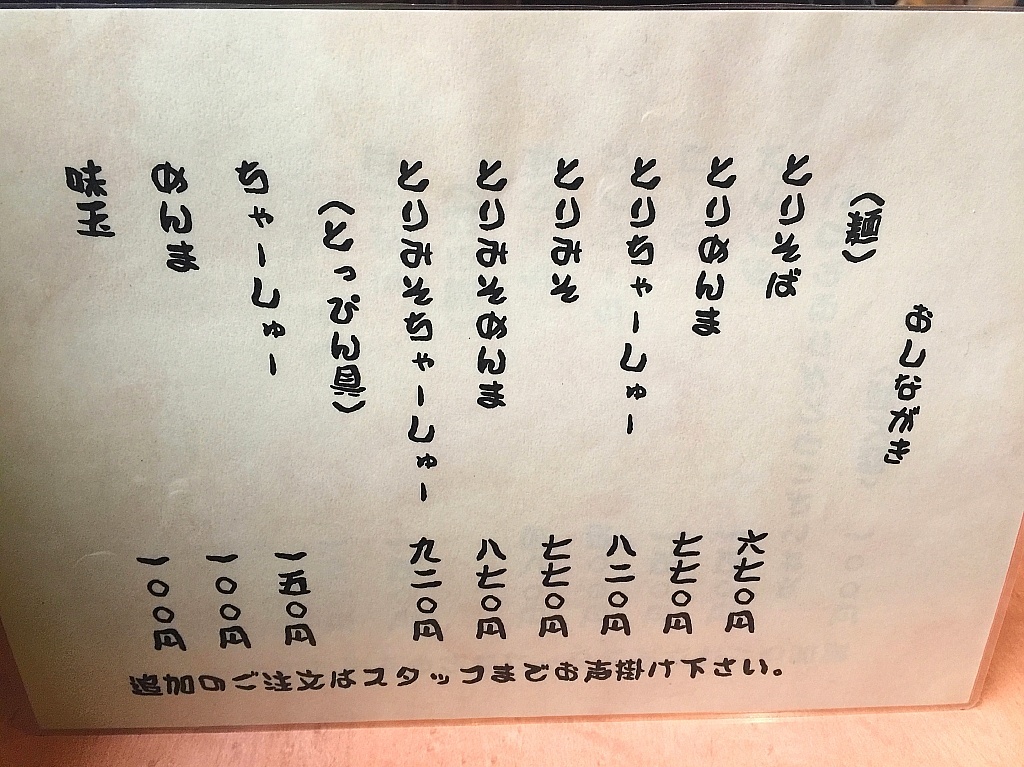 おしながき
(麺)
とりそば 六七〇円
とりめんま 七七〇円
とりちゃーしゅー 八二〇円
とりみそ 七七〇円
とりみそめんま 八七〇円
とりみそちゃーしゅー 九二〇円
(とっぴん具)
ちゃーしゅー 一五〇円
めんま 一〇〇円
味玉 一〇〇円
追加のご注文はスタッフまでお声掛け下さい。